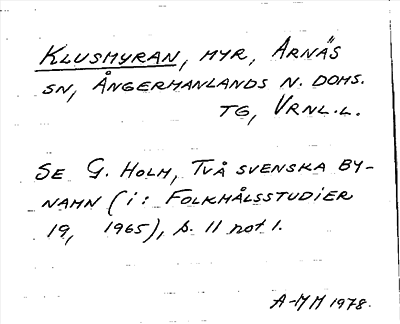 KLUSMYRAN, MYR, ARNÄS
SN, ÅNGERMANLANDS N. DOMS.
TG, VRNL.L.
SE G. HOLM, TVÅ SVENSKA BY-
NAMN (i: FOLKMÅLSSTUDIER
19, 1965), s. 11 not 1.
A-MM 1978.